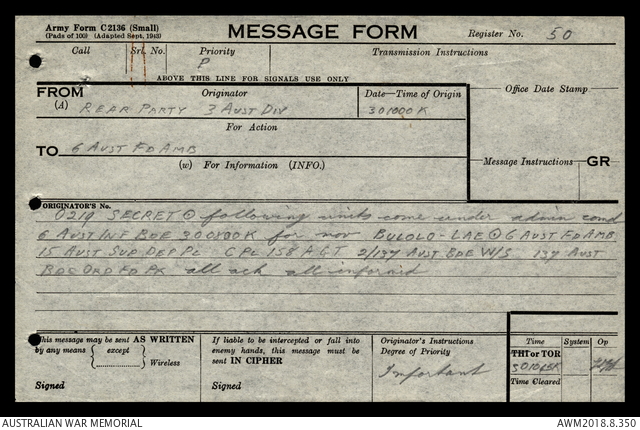 Army Form C2136 (Small)
(Pads of 100) (Adapted Sept. 1943)
MESSAGE FORM
Register No. 50
Call Srl. No. Priority Transmission Instructions
P
ABOVE THIS LINE FOR SIGNALS USE ONLY
FROM Originator Date—Time of Origin
Office Date Stamp
(A) REAR PARTY 3 AUST DIV 301000K
For Action
TO 6 AUST FD AMB
(w) For Information (INFO.)
Message Instructions GR
ORIGINATOR'S No.
0219 SECRET ⊙ following units come under admin comd
6 AUST INF BDE 300800K for mov BULOLO-LAE ⊙ 6 AUST FD AMB
15 AUST SUP DEP PL C PL 158 A G T 2/137 AUST BDE W/S 137 AUST
BDE ORD FD PK all ack all informed
This message may be sent AS WRITTEN
by any means { except } Wireless
Signed
If liable to be intercepted or fall into
enemy hands, this message must be
sent IN CIPHER
Signed
Originator's Instructions
Degree of Priority
Important
Time System Op
THI or TOR
Time Cleared
AUSTRALIAN WAR MEMORIAL
AWM2018.8.350